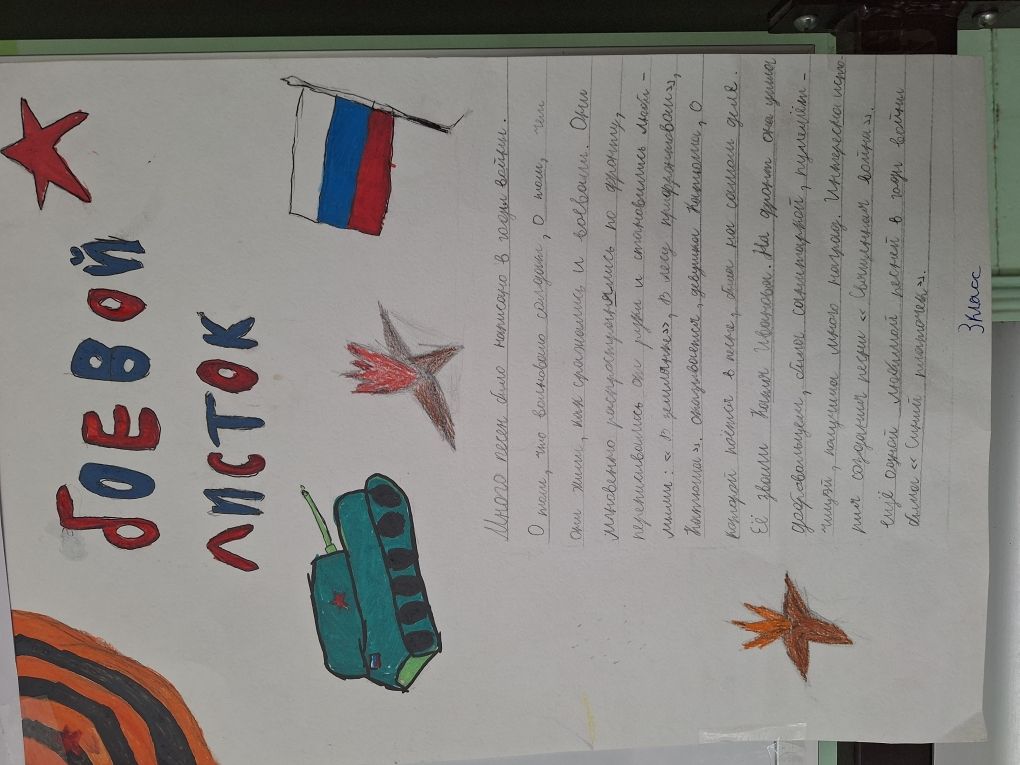 БОЕВОЙ
ЛИСТОК
Много песен было написано в годы войны.
О том, что волновало солдат, о том, чем
они жили, как сражались и воевали. Они
мгновенно распространялись по фронту,
переписывались от руки и становились люби-
мыми: «В землянке», «В лесу прифронтовом»,
Катюша». оказывается, девушка Катюша, о
которой поётся в песне, была на самом деле.
Её звали Катя Иванова. На фронт она ушла
добровольцем, была санитаркой, пулемёт-
чицей, получила много наград. Интересна исто-
рия создания песни «Священная война».
ещё одной любимой песней в годы войны
была «Синий платочек».
3 Класс